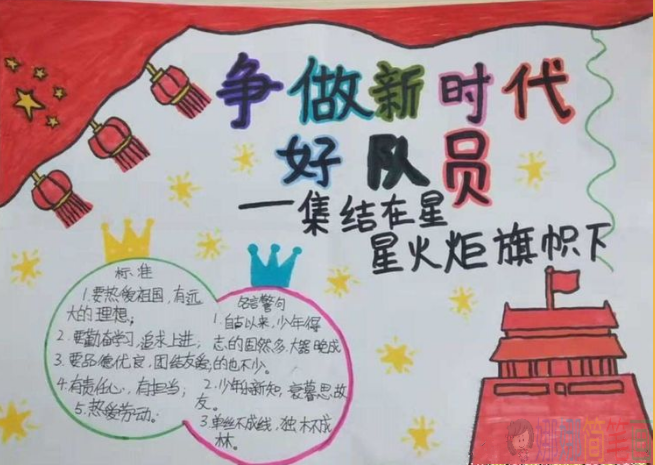 争做新时代
好队员
一集结在星
星火炬旗帜下
标准
1.要热爱祖国,有远
大的理想;
2.要勤奋学习,追求上进;
3.要品德优良,团结友爱;
4.有责任心,有担当;
5.热爱劳动。
名言警句
1.自古以来,少年得
志的固然多,大器晚成
的也不少。
2.少年乐新知,衰暮思故
友。
3.单丝不成线,独木不成
林。